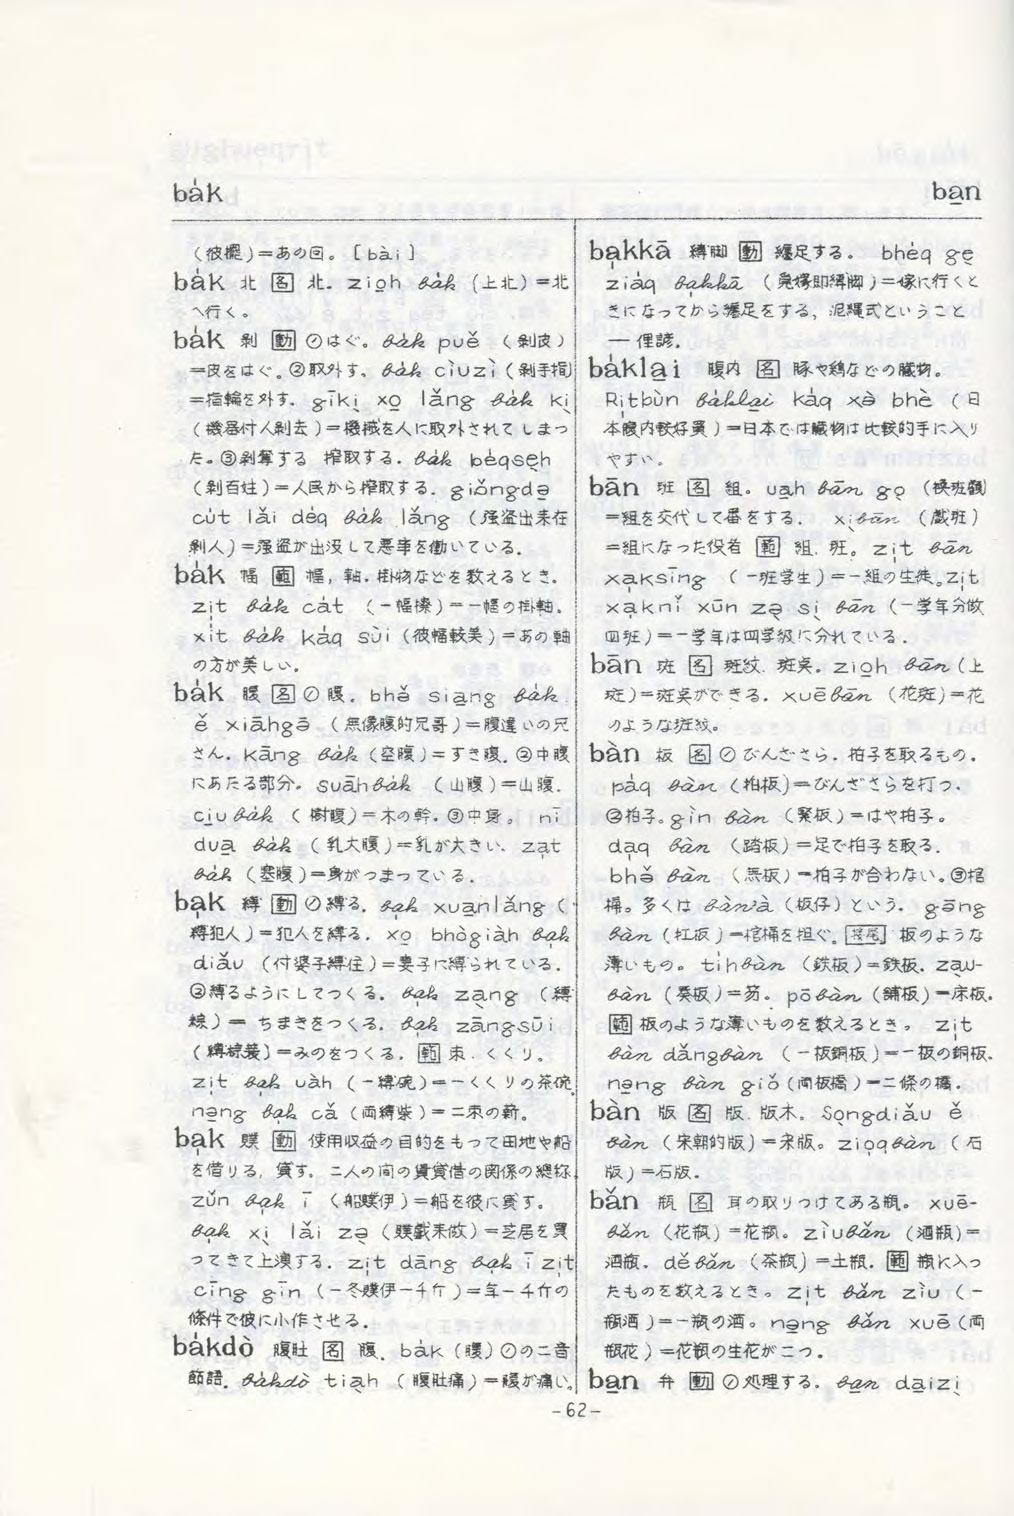 ba̍k
ba̱n
（彼擺）＝あの回。［bài］
ba̍k 北 [名] 北. zio̱h ba̍k（上北）＝北
へ行く。
ba̍k 剝 [動] ①はぐ。ba̍k puě（剝皮）
＝皮をはぐ。②取外す. ba̍k cìuzì（剝手指）
＝指輪を外す. gīki̱ xo̱ lǎng ba̍k ki̱
（機器付人剝去）＝機械を人に取外されてしまっ
た。③剝奪する 搾取する. ba̍k bèqse̱h
（剝百姓）＝人民から搾取する. giǒngda̱
cu̍t lǎi dėq ba̍k lǎng（强盗出来在
剝人）＝强盗が出没して悪事を働いている.
ba̍k 幅 [範] 幅, 軸. 掛物などを数えるとき.
zi̱t ba̍k ca̍t（一幅 ）＝一幅の掛軸.
xi̍t ba̍k ka̍q sùi（彼幅較美）＝あの軸
の方が美しい。
ba̍k 腹 [名] ① 腹. bhǎ sia̱ng ba̍k
ě xiāhgā（無像腹的兄哥）＝腹違いの兄
さん. kāng ba̍k（空腹）＝すき腹. ②中腹
にあたる部分. suāhba̍k （山腹）＝山腹.
ci̱uba̍k（樹腹）＝木の幹. ③中身。 nī
dua̱ ba̍k （乳大腹）＝乳が大きい. za̱t
ba̍k（塞腹）＝身がつまっている.
ba̱k 縛 [動] ①縛る. ba̱k xua̱nlǎng（
縛犯人）＝犯人を縛る. xo̱ bhògiàh ba̱k
diǎu （付婆子縛住）＝妻子に縛られている.
②縛るようにしてつくる. ba̱k za̱ng（縛
粽）＝ ちまきをつくる. ba̱k zāngsūi
（縛棕蓑）＝みのをつくる. [範] 束. くくり。
zi̱t ba̱k uàh（一縛碗）＝一くくりの茶碗.
na̱ng ba̱k cǎ（両縛柴）＝二束の薪。
ba̱k 贌 [動] 使用収益の目的をもって田地や船
を借りる, 貸す. 二人の間の賃貸借の関係の総称.
zǔn ba̱k ī （船贌伊）＝船を彼に貸す.
ba̱k xi̱ lǎi za̱（贌戯来做）＝芝居を買
ってきて上演する. zi̱t dāng ba̱k ī zi̱t
cīng gīn（一冬贌伊一千斤）＝年一千斤の
條件で彼に小作させる.
ba̍kdò 腹肚 [名] 腹. ba̍k（腹）①の二音
節語. ba̍kdò tia̱h（腹肚痛）＝腹が痛い.
ba̱kkā 縛脚 [動] 纏足する. bhėq ge̱
zia̍q ba̱kkā （ 嫁即縛脚）＝嫁に行くと
きになってから纏足をする, 泥縄式ということ
— 俚諺.
ba̍kla̱i 腹内 [名] 豚や鶏などの臓物.
Ri̱tbùn ba̍kla̱i ka̍q xà bhè（日
本腹内較好買）＝日本では臓物は比較的手に入り
やすい.
bān 班 [名] 組. ua̱h bān go̱（換班顧）
＝組を交代して番をする. xi̱bān （戯班）
＝組になった役者 [範] 組. 班。zi̱t bān
xa̱ksīng （一班学生）＝一組の生徒。zi̱t
xa̱knǐ xūn za̱ si̱ bān（一学年分做
四班）＝一学年は四学級に分れている.
bān 斑 [名] 斑紋. 斑点. zio̱h bān（上
斑）＝斑点ができる. xuēbān （花斑）＝花
のような斑紋。
bàn 板 [名] ① びんざさら. 拍子を取るもの.
pa̍q bàn（拍板）＝びんざさらを打つ.
②拍子. gìn bàn （緊板）＝はや拍子。
da̱q bàn （踏板）＝足で拍子を取る.
bhǎ bàn （無板）＝拍子が合わない。③棺
桶. 多くは bàn'à（板仔）という. gāng
bàn（扛板）＝棺桶を担ぐ。[接尾] 板のような
薄いもの。ti̍hbàn （鉄板）＝鉄板. za̱u-
bàn（奏板）＝笏. pōbàn（舗板）＝床板.
[範] 板のような薄いものを数えるとき. zi̱t
bàn dǎngbàn （一板銅板）＝一板の銅板.
na̱ng bàn giǒ（両板橋）＝二條の橋.
bàn 版 [名] 版. 版木. So̱ngdiǎu ě
bàn （宋朝的版）＝宋版。 zio̱qbàn （石
版）＝石版.
bǎn 瓶 [名] 耳の取りつけてある瓶. xuē-
bǎn（花瓶）＝花瓶. zìubǎn （酒瓶）＝
酒瓶. děbǎn（茶瓶）＝土瓶. [範] 瓶に入っ
たものを数えるとき。zi̱t bǎn zìu（一
瓶酒）＝一瓶の酒. na̱ng bǎn xuē（両
瓶花）＝花瓶の生花が二つ.
ba̱n 弁 [動] ①処理する. ba̱n da̱izi̱
-62-